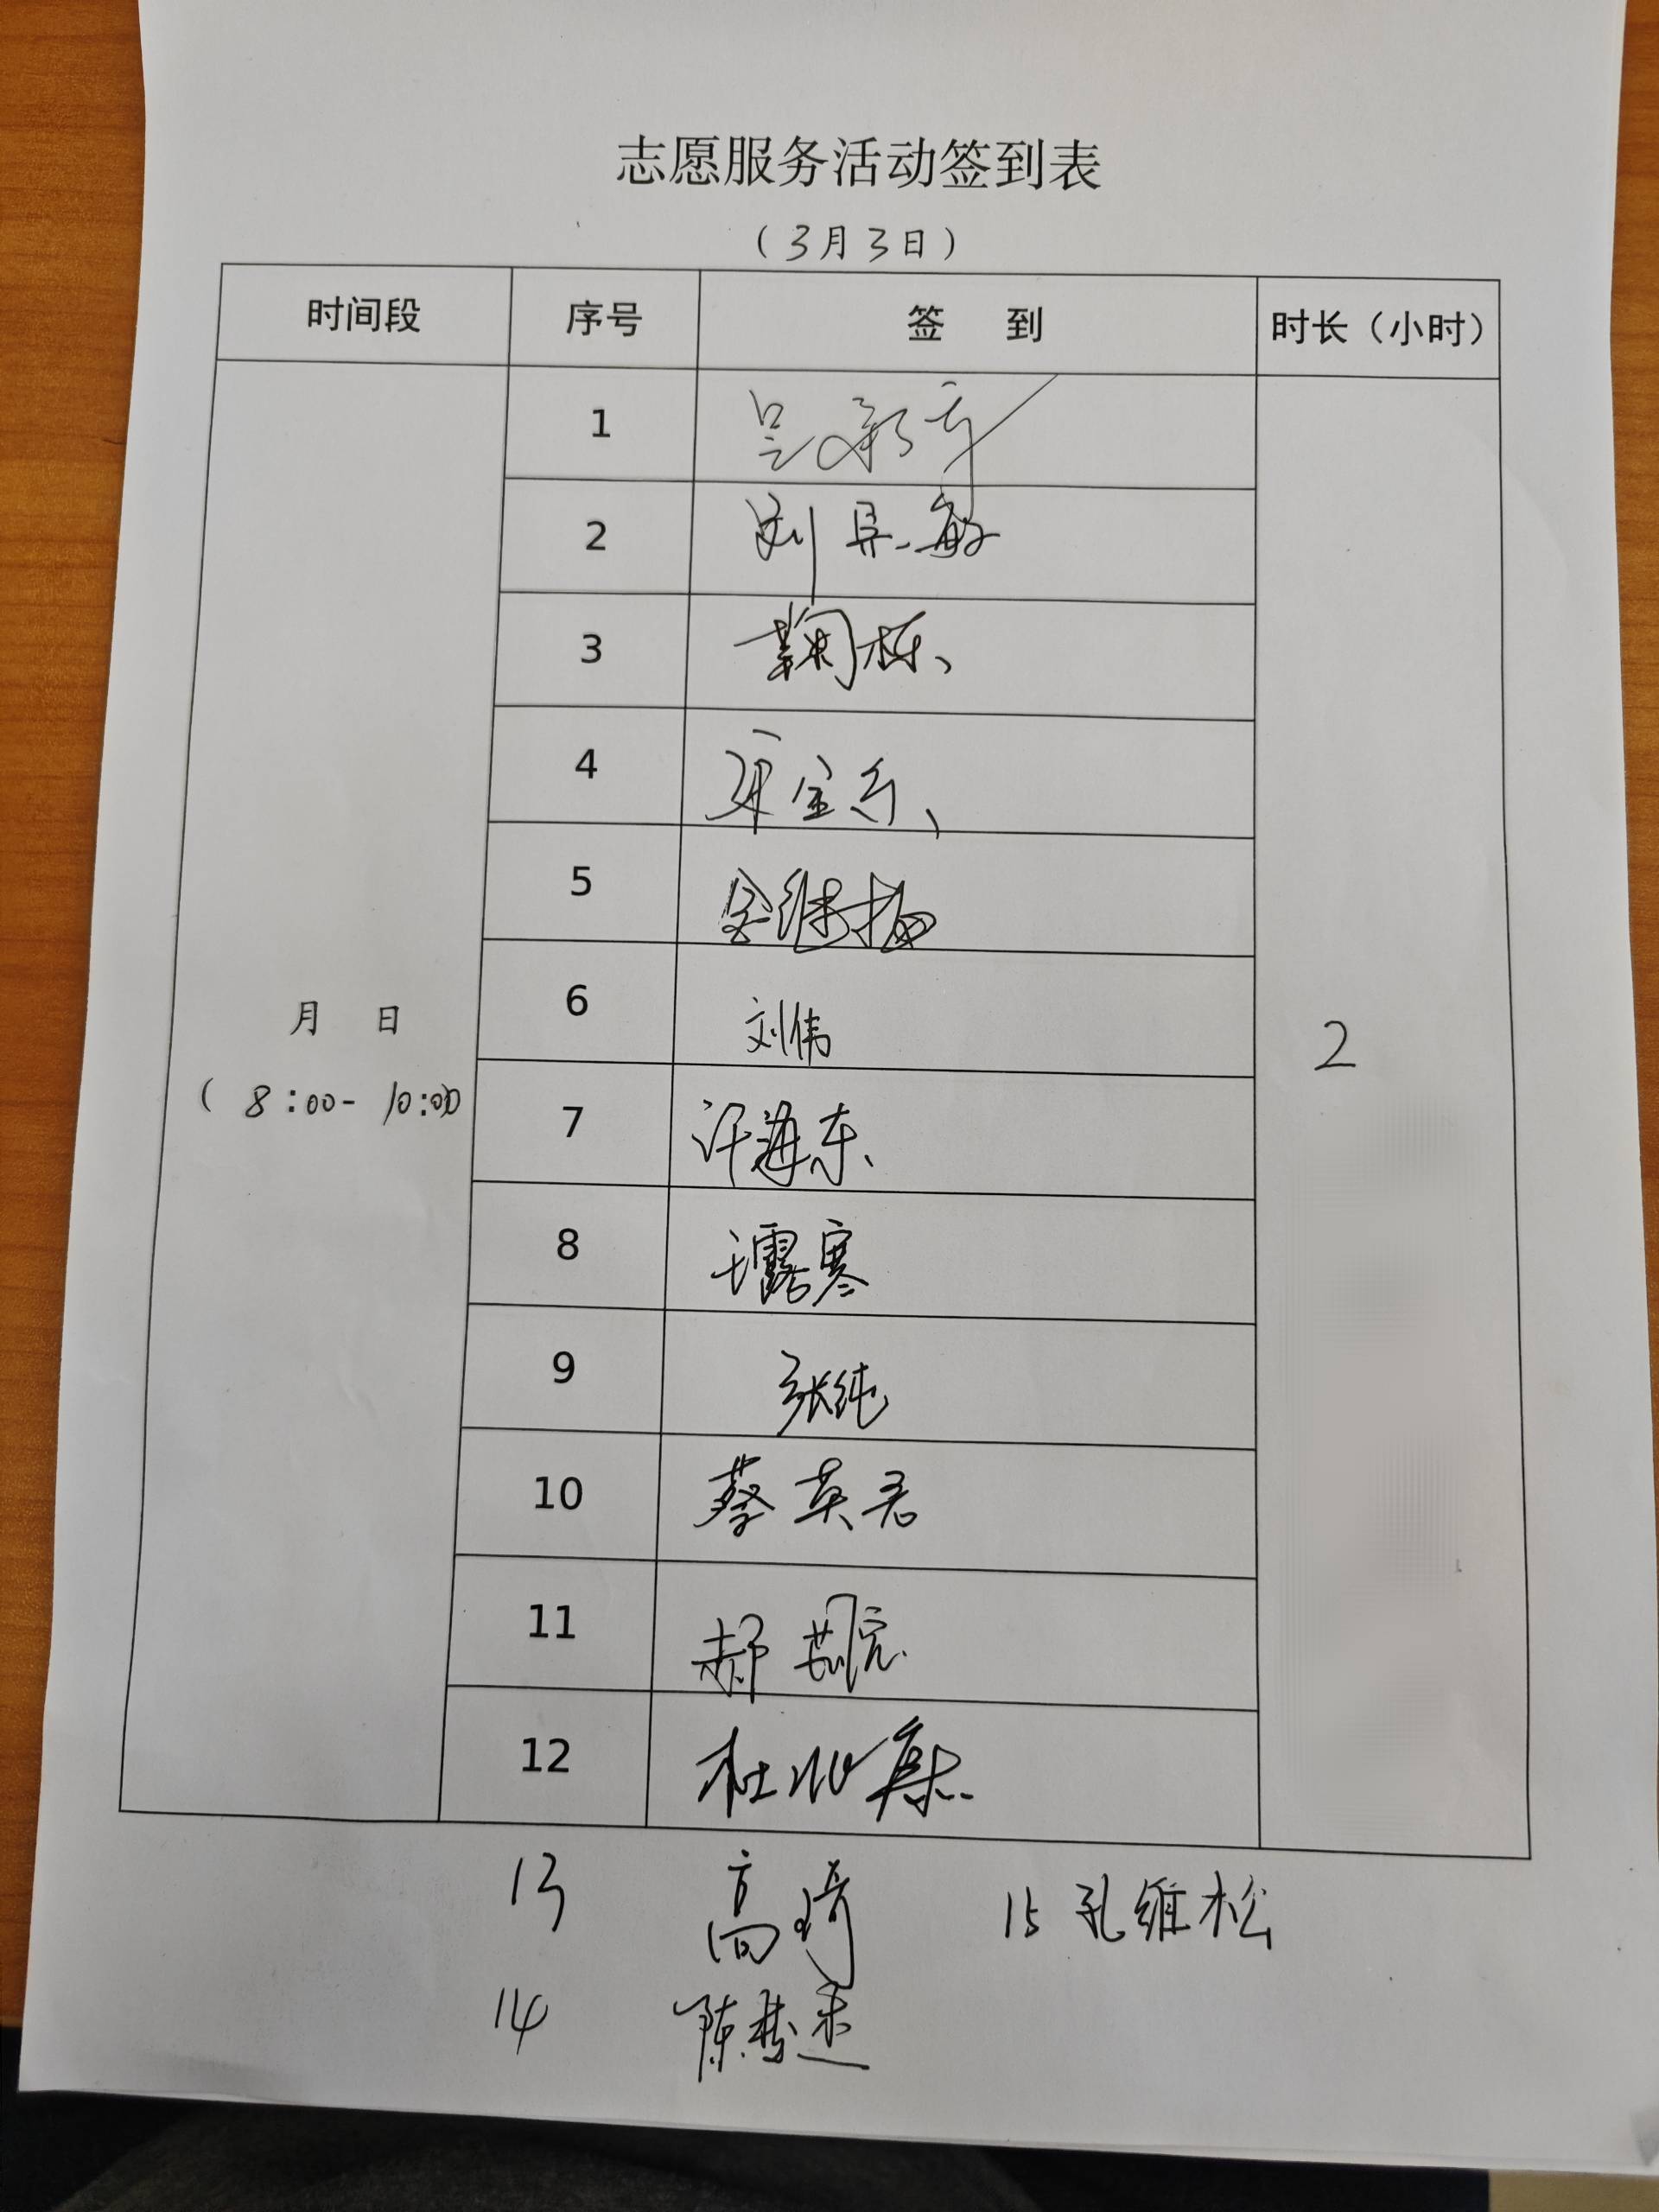 志愿服务活动签到表
（3月3日）
时间段 序号 签 到 时长（小时）
1 吴
2 刘 敏
3 鞠栋
4 宝
5 金继梅
月 日
6 刘伟
2
（8:00-10:00
7 许海东
8 王露寒
9 张纯
10 蔡英君
11 郝
12 杜
13 高琦 15 孔维松
14 陈